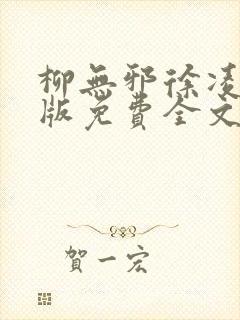 柳無邪徐凌
版免費全文
賀一宏